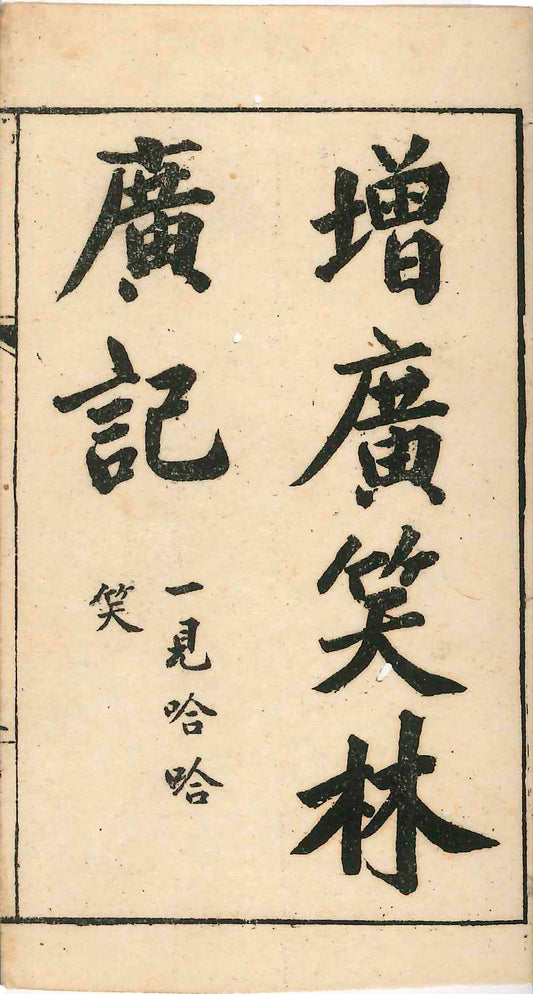 增廣笑林
廣記
一見哈哈
笑